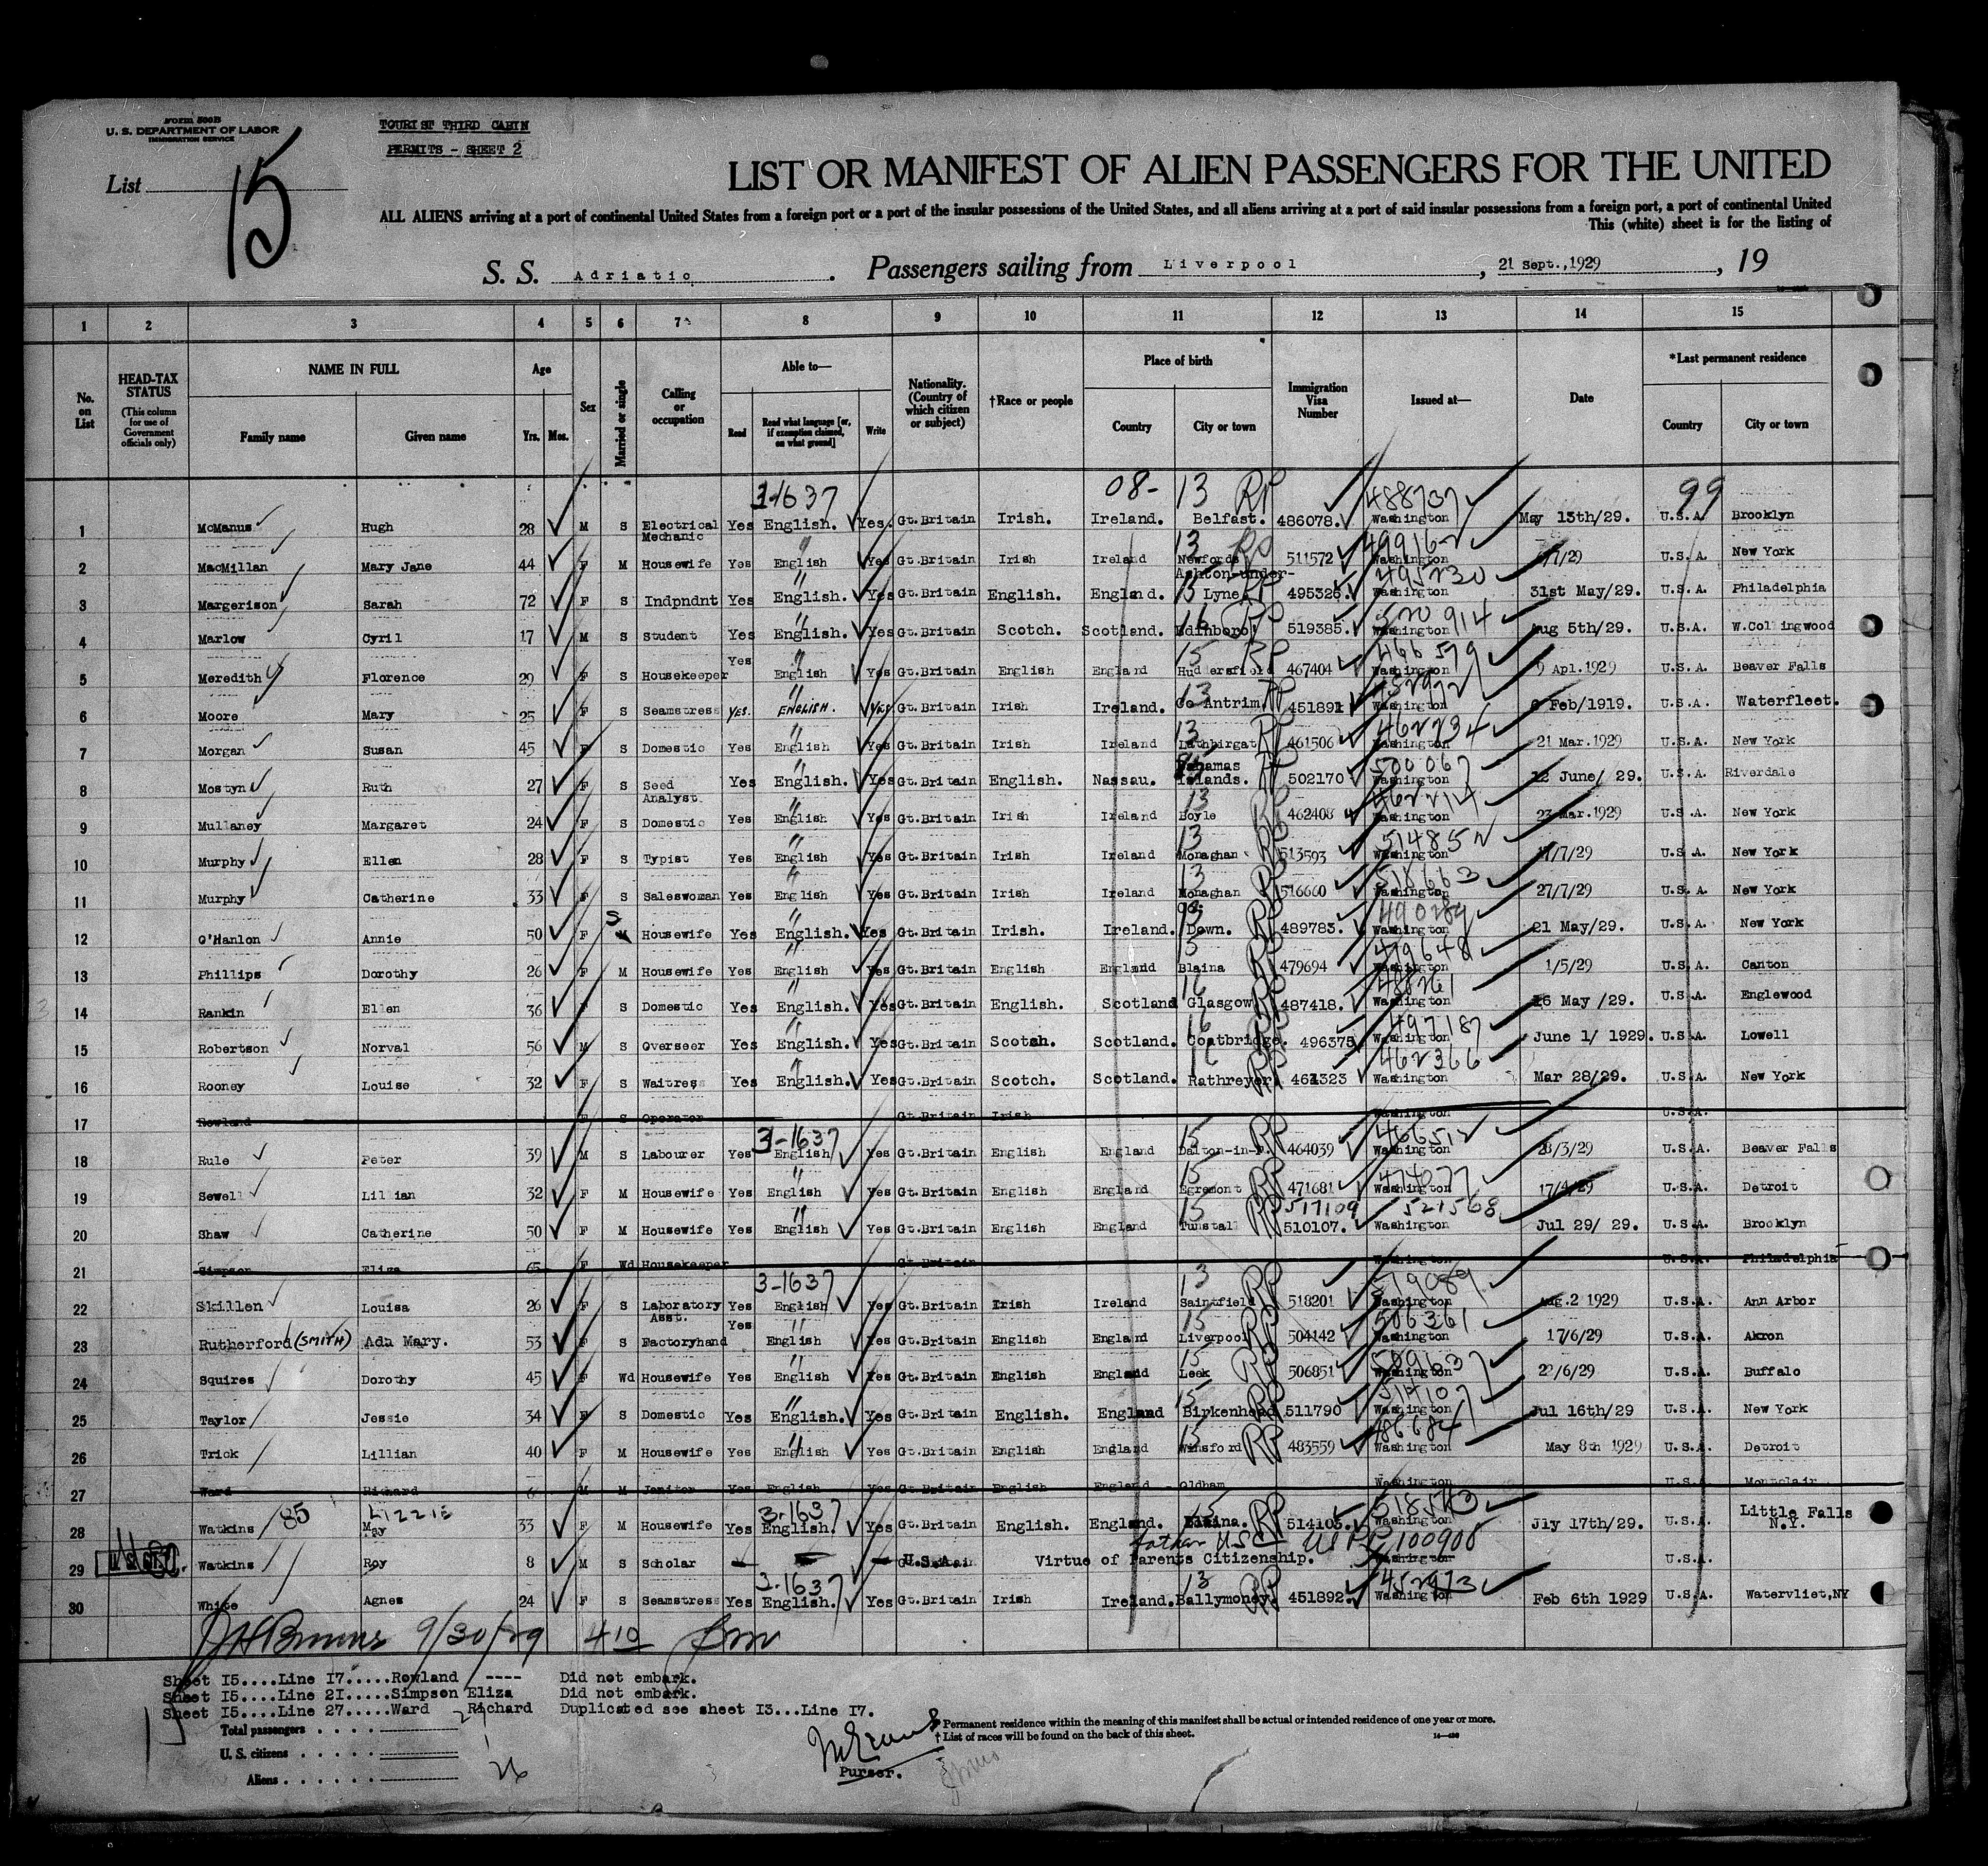 Form 500B
U. S. DEPARTMENT OF LABOR
IMMIGRATION SERVICE
TOURIST THIRD CABIN
PERMITS - SHEET 2
List 15
LIST OR MANIFEST OF ALIEN PASSENGERS FOR THE UNITED
ALL ALIENS arriving at a port of continental United States from a foreign port or a port of the insular possessions of the United States, and all aliens arriving at a port of said insular possessions from a foreign port, a port of continental United
This (white) sheet is for the listing of
S. S. Adriatic. Passengers sailing from Liverpool, 21 Sept.,1929, 19
1 2 3 4 5 6 7 8 9 10 11 12 13 14 15
No. on List
HEAD-TAX STATUS (This column for use of Government officials only)
NAME IN FULL
Family name Given name
Age
Yrs. Mos.
Sex
Married or single
Calling or occupation
Able to—
Read Read what language [or, if exemption claimed, on what ground] Write
Nationality. (Country of which citizen or subject)
†Race or people
Place of birth
Country City or town
Immigration Visa Number
Issued at—
Date
*Last permanent residence
Country City or town
3-1637 08- 13 RP 488737 99
1 McManus Hugh 28 M S Electrical Mechanic Yes English. Yes. Gt.Britain Irish. Ireland. Belfast. 486078. Washington May 13th/29. U.S.A Brooklyn
2 MacMillan Mary Jane 44 F M Housewife Yes English Yes Gt.Britain Irish Ireland 13 Newfords RP 511572 Washington /7/29 U.S.A. New York
3 Margerison Sarah 72 F S Indpndnt Yes English. Yes Gt.Britain English. England. Ashton-under-Lyne 15 RP 495326. 495230 Washington 31st May/29. U.S.A. Philadelphia
4 Marlow Cyril 17 M S Student Yes English. Yes Gt.Britain Scotch. Scotland. 16 Edinboro' RP 519385. 520914 Washington Aug 5th/29. U.S.A. W.Collingwood
5 Meredith Florence 29 F S Housekeeper Yes English Yes Gt.Britain English England 15 Huddersfield RP 467404 466579 Washington 9 Apl.1929 U.S.A. Beaver Falls
6 Moore Mary 25 F S Seamstress YES. ENGLISH. YES Gt.Britain Irish Ireland. 13 Co Antrim. RP 451891 Washington Feb/1919. U.S.A. Waterfleet.
7 Morgan Susan 45 F S Domestic Yes English Yes Gt.Britain Irish Ireland 13 Lathbirgat RP 461506 462234 Washington 21 Mar.1929 U.S.A. New York
8 Mostyn Ruth 27 F S Seed Analyst Yes English. Yes Gt.Britain English. Nassau. Bahamas Islands. 502170 500067 Washington 12 June/ 29. U.S.A. Riverdale
9 Mullaney Margaret 24 F S Domestic Yes English Yes Gt.Britain Irish Ireland 13 Boyle RP 462408 462214 Washington 23 Mar.1929 U.S.A. New York
10 Murphy Ellen 28 F S Typist Yes English Yes Gt.Britain Irish Ireland 13 Monaghan RP 513593 514852 Washington 17/7/29 U.S.A. New York
11 Murphy Catherine 33 F S Saleswoman Yes English Yes Gt.Britain Irish Ireland 13 Monaghan RP 516660 518663 Washington 27/7/29 U.S.A. New York
12 O'Hanlon Annie 50 F S Housewife Yes English. Yes Gt.Britain Irish. Ireland. Co. Down. RP 489783. 490289 Washington 21 May/29. U.S.A. New York
13 Phillips Dorothy 26 F M Housewife Yes English Yes Gt.Britain English England Blaina RP 479694 479648 Washington 1/5/29 U.S.A. Canton
14 Rankin Ellen 36 F S Domestic Yes English. Yes Gt.Britain English. Scotland 16 Glasgow RP 487418. 488261 Washington 16 May /29. U.S.A. Englewood
15 Robertson Norval 56 M S Overseer Yes English. Yes Gt.Britain Scotch. Scotland. 16 Coatbridge. RP 496375 497187 Washington June 1/ 1929. U.S.A. Lowell
16 Rooney Louise 32 F S Waitress Yes English. Yes Gt.Britain Scotch. Scotland. 16 Rathreyor RP 461323 462366 Washington Mar 28/29. U.S.A. New York
17 Rowland F S Operator Gt.Britain Irish Washington U.S.A.
18 Rule Peter 39 M S Labourer Yes 3-1637 English Yes Gt.Britain English England 15 Dalton-in-F. RP 464039 466512 Washington 28/3/29 U.S.A. Beaver Falls
19 Sewell Lillian 32 F M Housewife Yes English Yes Gt.Britain English England 15 Egremont RP 471681 474077 Washington 17/4/29 U.S.A. Detroit
20 Shaw Catherine 50 F M Housewife Yes English Yes Gt.Britain English England 15 Tunstall RP 517109 510107. 521568 Washington Jul 29/ 29. U.S.A. Brooklyn
21 Simpson Eliza 65 F Wd Housekeeper Gt.Britain Washington U.S.A. Philadelphia
22 Skillen Louisa 26 F S Laboratory Asst. Yes 3-1637 English Yes Gt.Britain Irish Ireland 13 Saintfield RP 518201 519089 Washington Aug.2 1929 U.S.A. Ann Arbor
23 Rutherford (SMITH) Ada Mary. 53 F S Factoryhand Yes English Yes Gt.Britain English England 15 Liverpool RP 504142 506361 Washington 17/6/29 U.S.A. Akron
24 Squires Dorothy 45 F Wd Housewife Yes English Yes Gt.Britain English England 15 Leek RP 506851 Washington 22/6/29 U.S.A. Buffalo
25 Taylor Jessie 34 F S Domestic Yes English. Yes Gt.Britain English. England 15 Birkenhead RP 511790 514107 Washington Jul 16th/29 U.S.A. New York
26 Trick Lillian 40 F M Housewife Yes English Yes Gt.Britain English England 15 Winsford RP 483559 486684 Washington May 8th 1929 U.S.A. Detroit
27 Ward Richard M M Janitor Yes English Yes Gt.Britain English England Oldham Washington U.S.A. Montclair
28 Watkins 85 LIZZIE May 33 F M Housewife Yes 3-1637 English. Yes Gt.Britain English. England. 15 Blaina. RP 514103. Washington Jly 17th/29. U.S.A. Little Falls N.Y.
29 Watkins Roy 8 M S Scholar U.S.A. Virtue of Parents Citizenship. father USC US PP 100908 Washington U.S.A.
30 White Agnes 24 F S Seamstress Yes 3-1637 English. Yes Gt.Britain Irish Ireland. 13 Ballymoney. RP 451892. 452973 Washington Feb 6th 1929 U.S.A. Watervliet,NY
9/30/29 410
Sheet 15....Line 17.....Rowland ---- Did not embark.
Sheet 15....Line 21.....Simpson Eliza Did not embark.
Sheet 15....Line 27.....Ward Richard Duplicated see sheet 13...Line 17.
Total passengers
U. S. citizens
Aliens 26
Purser.
* Permanent residence within the meaning of this manifest shall be actual or intended residence of one year or more.
† List of races will be found on the back of this sheet.